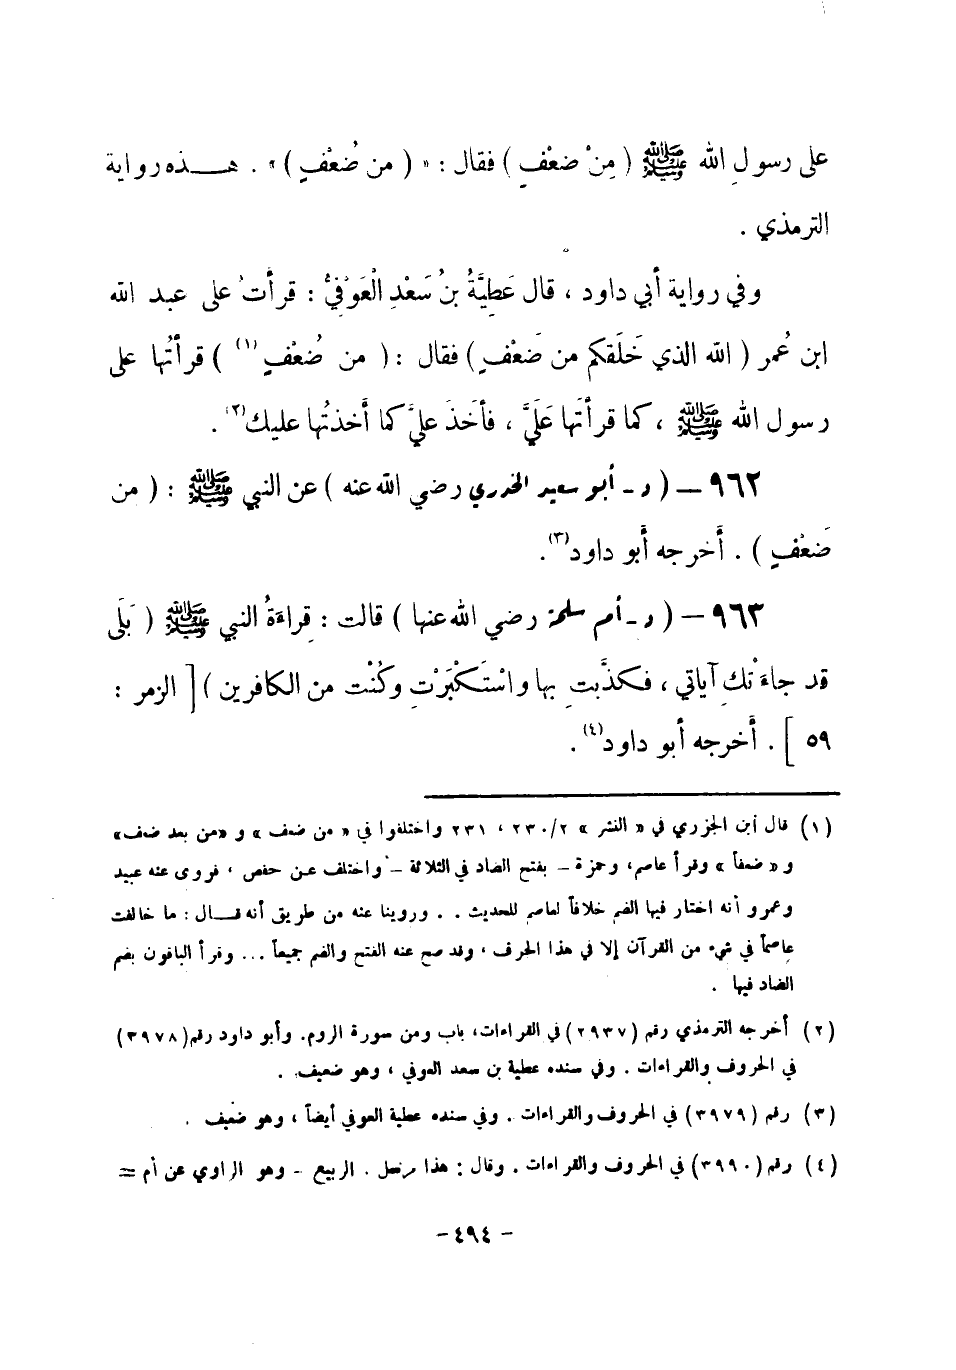 على رسولِ الله ﷺ ( مِنْ ضعْفٍ ) فقال : « ( من ضُعْفٍ ) » . هـــذه رواية
الترمذي .
وفي رواية أبي داود ، قال عَطِيَّةُ بنُ سَعْدِ الْعَوْفيُّ : قرأتُ على عبد الله
ابن عُمر ( الله الذي خَلَقكم من ضَعْفٍ ) فقال : ( من ضُعْفٍ (١) ) قرأتُها على
رسول الله ﷺ ، كما قرأتَها عَلَيَّ ، فأخَذَ عليَّ كما أخذتُها عليك (٢) .
٩٦٢ — ( د - أبو سعيد الخدري رضي الله عنه ) عن النبي ﷺ : ( من
ضَعْفٍ ) . أخرجه أبو داود (٣) .
٩٦٣ — ( د - أم سلمة رضي الله عنها ) قالت : قراءةُ النبي ﷺ ( بَلَى
قد جاءَتْكِ آياتي ، فكذَّبتِ بها واسْتَكْبَرْتِ وكُنْتِ من الكافرين ) [ الزمر :
٥٩ ] . أخرجه أبو داود (٤) .
(١) قال ابن الجزري في « النشر » ٢٣٠/٢ ، ٢٣١ واختلفوا في « من ضعف » و «من بعد ضعف»
و « ضعفاً » وقرأ عاصم، وحمزة - بفتح الضاد في الثلاثة - واختلف عـن حفص ، فروى عنه عبيد
وعمرو أنه اختار فيها الضم خلافاً لعاصم للحديث . . وروينا عنه من طريق أنه قـــال : ما خالفت
عاصماً في شيء من القرآن إلا في هذا الحرف ، وقد صح عنه الفتح والضم جميعاً ... وقرأ الباقون بضم
الضاد فيها .
(٢) أخرجه الترمذي رقم (٢٩٣٧) في القراءات، باب ومن سورة الروم. وأبو داود رقم (٣٩٧٨)
في الحروف والقراءات . وفي سنده عطية بن سعد العوفي ، وهو ضعيف .
(٣) رقم (٣٩٧٩) في الحروف والقراءات . وفي سنده عطية العوفي أيضاً ، وهو ضعيف .
(٤) رقم (٣٩٩٠) في الحروف والقراءات . وقال : هذا مرسل . الربيع - وهو الراوي عن أم =
- ٤٩٤ -